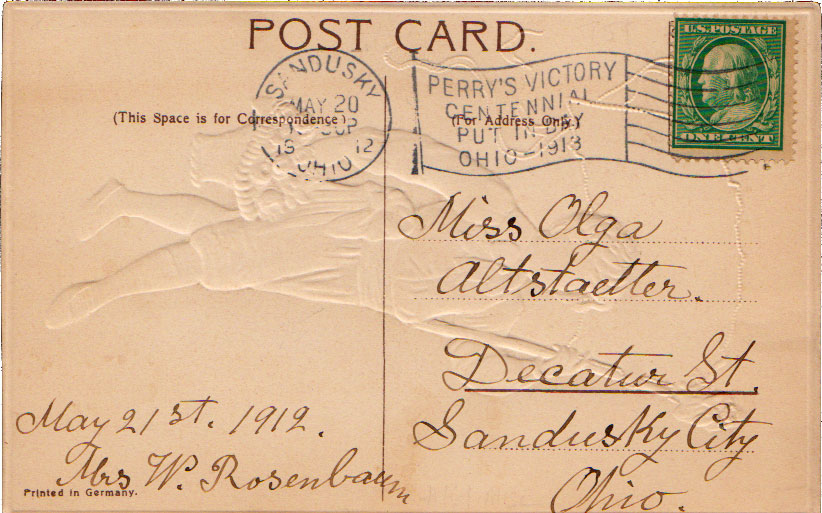 POST CARD.
SANDUSKY
MAY 20
1912
OHIO
PERRY'S VICTORY
CENTENNIAL
PUT IN BAY
OHIO-1913
U.S. POSTAGE
ONE CENT
(This Space is for Correspondence)
(For Address Only.)
Miss Olga
Altstaetter.
Decatur St.
Sandusky City
Ohio.
May 21st. 1912.
Mrs W. Rosenbaum
Printed in Germany.